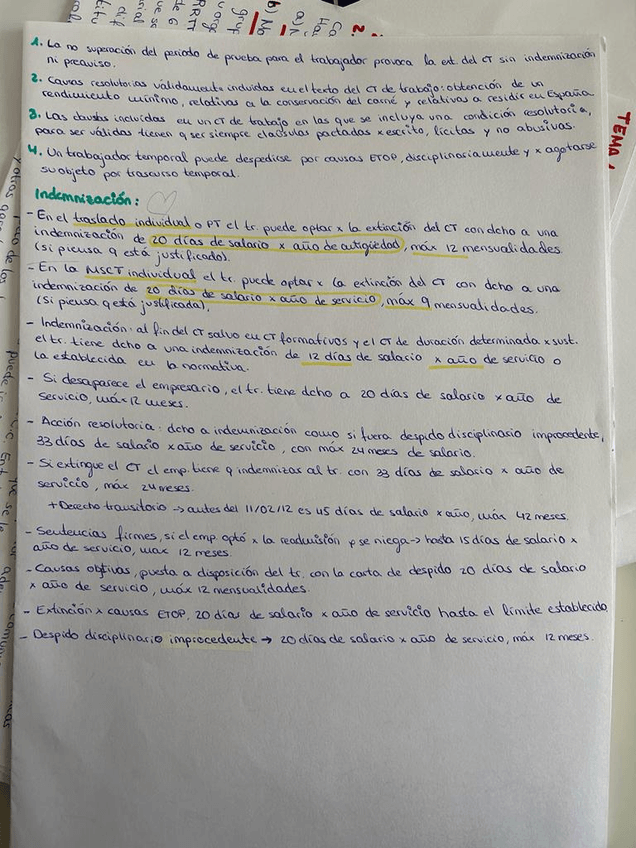 1. La no superación del periodo de prueba para el trabajador provoca la ext. del CT sin indemnización
ni preaviso.
2. Causas resolutorias válidamente incluidas en el texto del CT de trabajo: obtención de un
rendimiento mínimo, relativas a la conservación del carné y relativas a residir en España.
3. Las cláusulas incluidas en un CT de trabajo en las que se incluya una condición resolutoria,
para ser válidas tienen q ser siempre cláusulas pactadas x escrito, lícitas y no abusivas.
4. Un trabajador temporal puede despedirse por causas ETOP, disciplinariamente y x agotarse
su objeto por trascurso temporal.
Indemnización:
- En el traslado individual o PT el tr. puede optar x la extinción del CT con dcho a una
indemnización de 20 días de salario x año de antigüedad, máx 12 mensualidades
(si piensa q está justificado).
- En la MSCT individual el tr. puede optar x la extinción del CT con dcho a una
indemnización de 20 días de salario x año de servicio, máx 9 mensualidades.
(si piensa q está justificada),
- Indemnización: al fin del CT salvo en CT formativos y el CT de duración determinada x sust.
el tr. tiene dcho a una indemnización de 12 días de salario x año de servicio o
la establecida en la normativa.
- Si desaparece el empresario, el tr. tiene dcho a 20 días de salario x año de
servicio, máx 12 meses.
- Acción resolutoria: dcho a indemnización como si fuera despido disciplinario improcedente,
33 días de salario x año de servicio, con máx 24 meses de salario.
- Si extingue el CT el emp. tiene q indemnizar al tr. con 33 días de salario x año de
servicio, máx 24 meses.
+ Derecho transitorio → antes del 11/02/12 es 45 días de salario x año, máx 42 meses.
- Sentencias firmes, si el emp. optó x la readmisión y se niega → hasta 15 días de salario x
año de servicio, máx 12 meses.
- Causas objtivas, puesta a disposición del tr. con la carta de despido 20 días de salario
x año de servicio, máx 12 mensualidades.
- Extinción x causas ETOP, 20 días de salario x año de servicio hasta el límite establecido
- Despido disciplinario improcedente → 20 días de salario x año de servicio, máx 12 meses.
TEMA